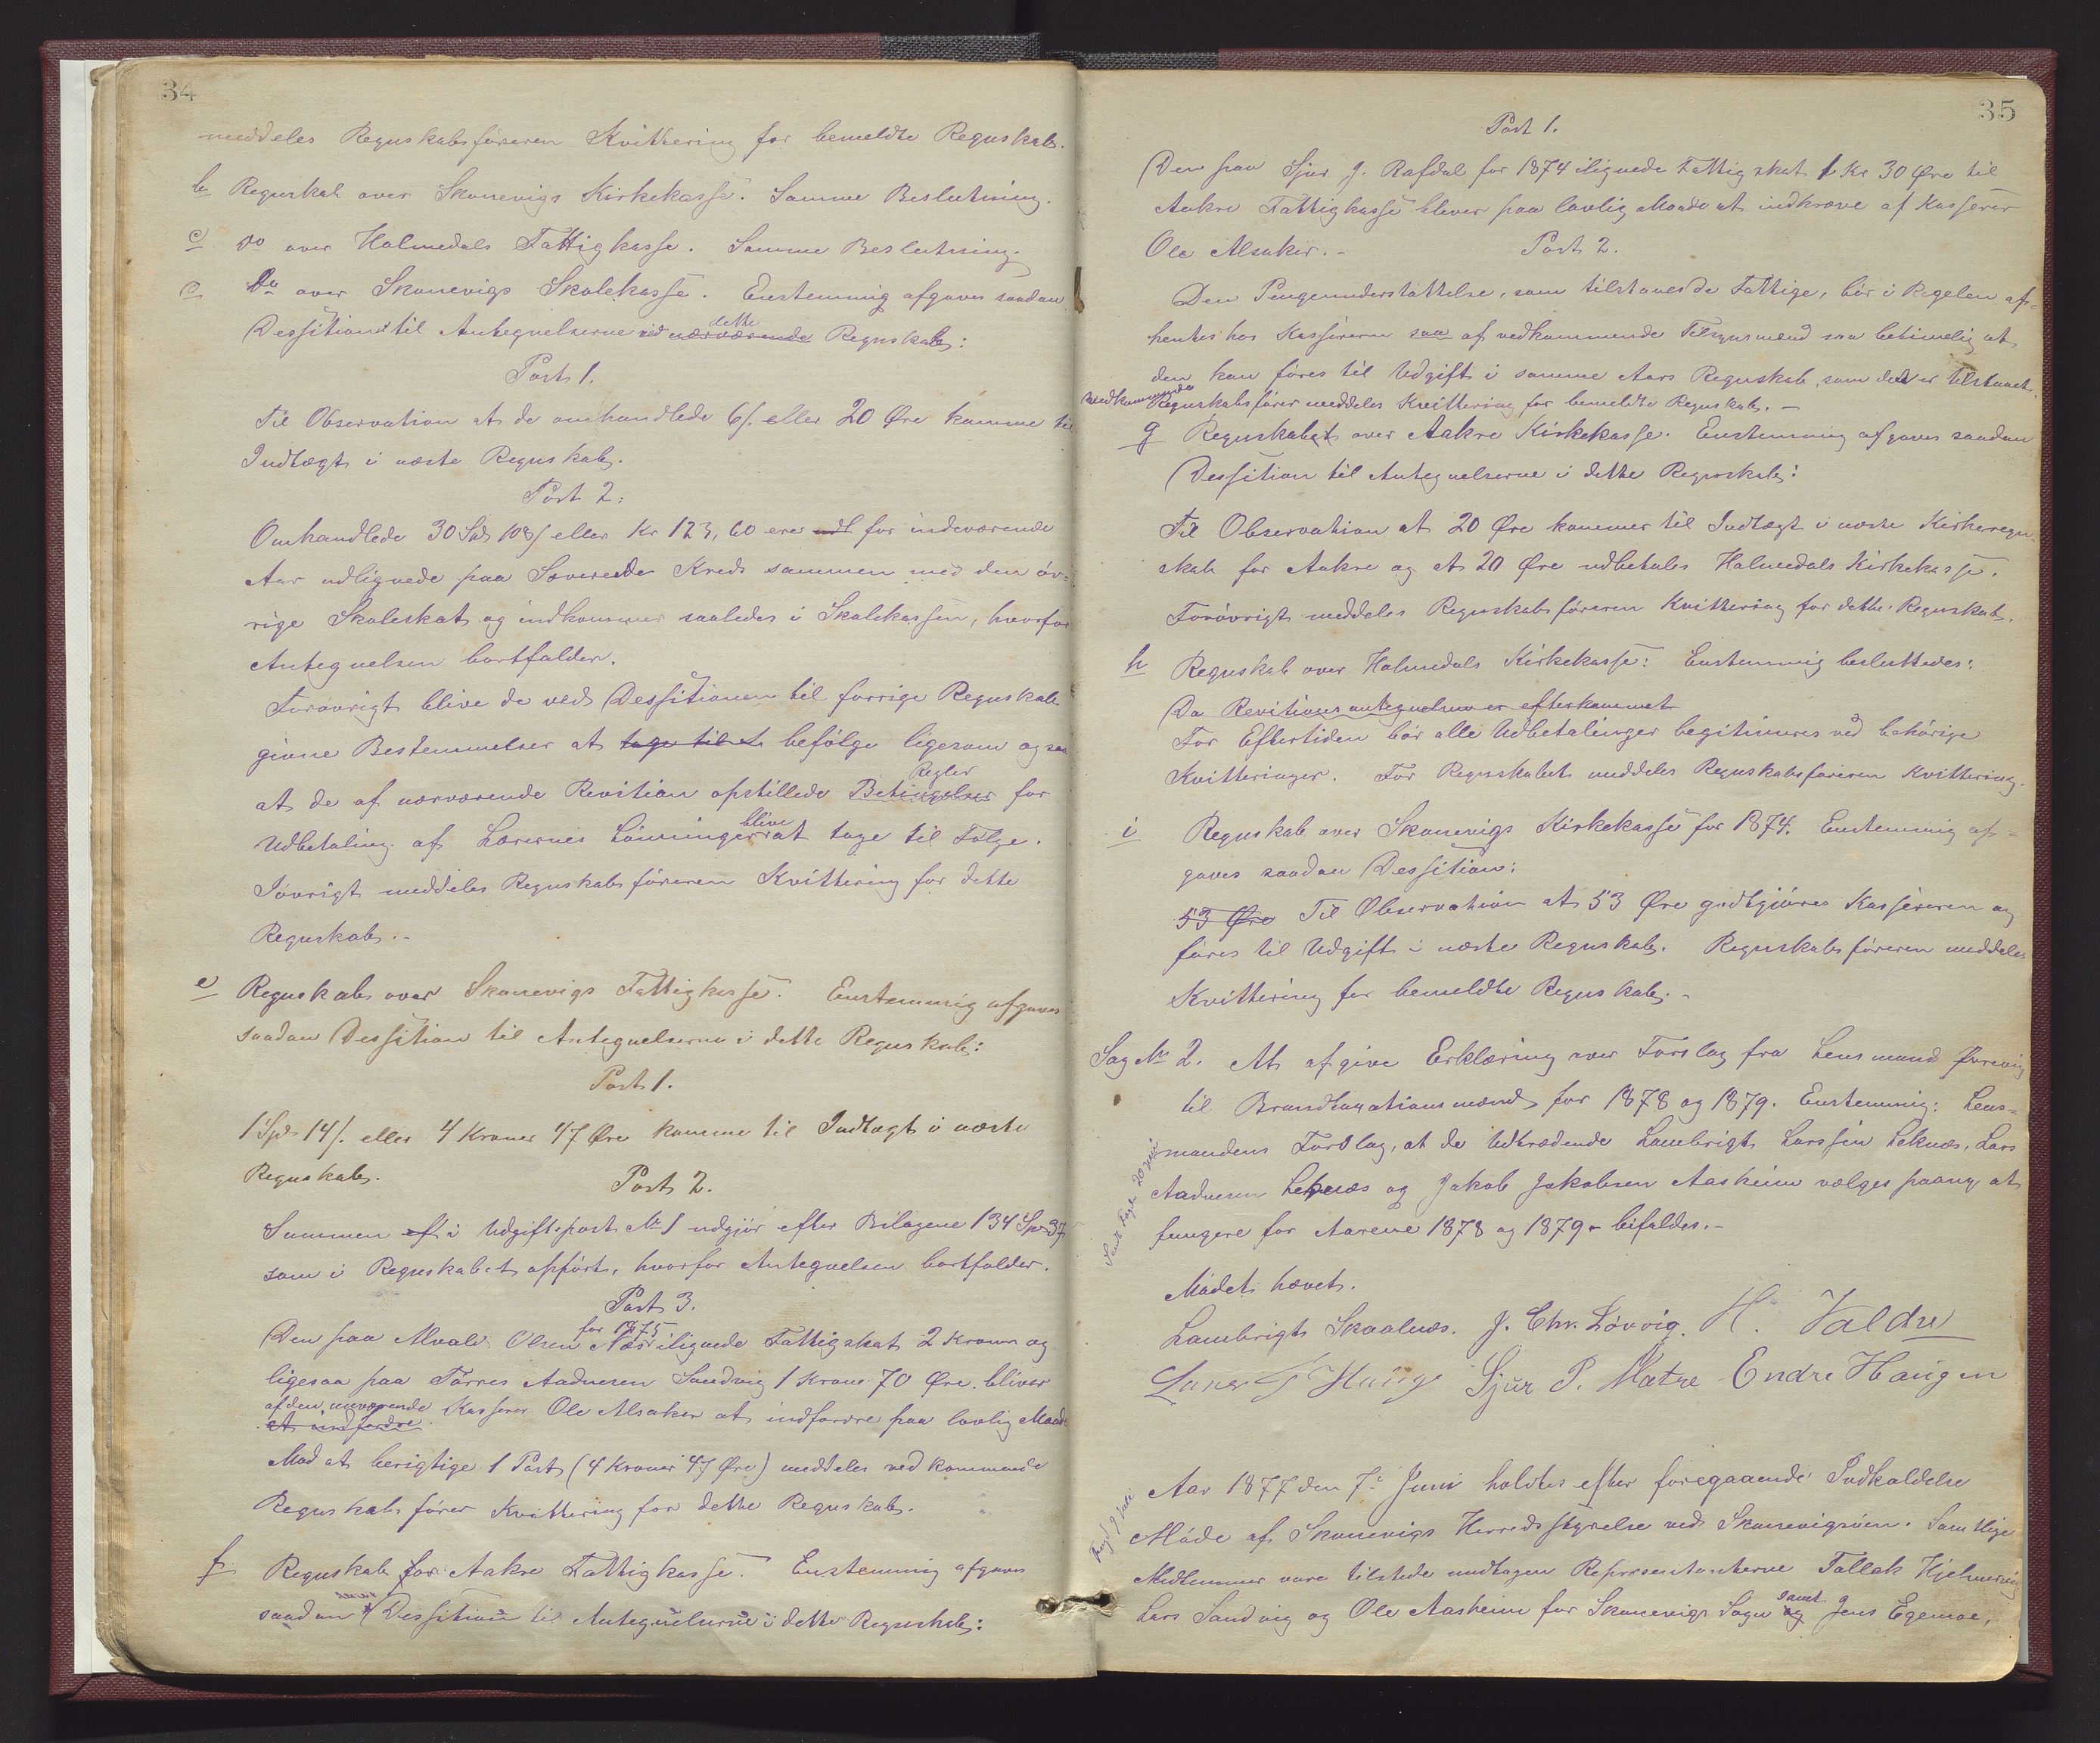 34
meddeles Regnskabsføreren Kvittering for bemeldte Regnskab.
b Regnskab over Skonevigs Kirkekasse. Samme Beslutning.
c) Do over Holmedals Fattigkasse. Samme Beslutning.
Do over Skonevigs Skolekasse. Enstemmig afgaves saadan
Dessition til Antegnelserne ved nærværende dette Regnskab:
Post 1.
Til Observation at de omhandlede 6/. eller 20 Øre komme til
Indtægt i næste Regnskab.
Post 2:
Omhandlede 30 Spd 108/ eller Kr 123,60 ere for indeværende
Aar udlignede paa Sævereide Kreds sammen med den øv-
rige Skoleskat og indkommer saaledes i Skolekassen, hvorfor
Antegnelsen bortfalder.
Forøvrigt blive de ved Dessitionen til forrige Regnskab
givne Bestemmelser at tage til at befølge ligesom ogsaa
at de af nærværende Revition opstillede Betingelser Regler for
Udbetaling af Lærernes Lønninger blive at tage til Følge.
Iøvrigt meddeles Regnskabsføreren Kvittering for dette
Regnskab.-
e Regnskab over Skonevigs Fattigkasse. Enstemmig afgaves
saadan Dessition til Antegnelserne i dette Regnskab:
Post 1.
1 Spd 14/. eller 4 Kroner 47 Øre komme til Indtægt i næste
Regnskab.
Post 2.
Summen i Udgiftspost No 1 udgjør efter Bilagene 134 Spd 37
som i Regnskabet opført, hvorfor Antegnelsen bortfalder.
Post 3.
Den paa Alvald Olsen Næs for 1875 ilignede Fattigskat 2 Kroner og
ligesaa paa Tørres Aadnesen Sandvig 1 Krone 70 Øre. bliver
at indfordre af den nuværende Kasserer Ole Alsaker at indfordre paa lovlig Maade
Mod at berigtige 1 Post (4 Kroner 47 Øre) meddeles vedkommende
Regnskabsfører Kvittering for dette Regnskab.
f Regnskab for Aakre Fattigkasse. Enstemmig afgaves
saadan Dessition til Antegnelserne i dette Regnskab:
35
Post 1.
Den paa Sjur J. Rafdal for 1874 ilignede Fattigskat 1 Kr 30 Øre til
Aakre Fattigkasse bliver paa lovlig Maade at indkræve af Kasserer
Ole Alsaker.-
Post 2.
Den Pengeunderstøttelse, som tilstaaes de Fattige, bør i Regelen af-
hentes hos Kassereren saa af vedkommende Tilsynsmænd saa betimelig at
den kan føres til Udgift i samme Aars Regnskab, som den er tilstaaet.
vedkommende Regnskabsfører meddeles Kvittering for bemeldte Regnskab.-
g Regnskabet over Aakre Kirkekasse. Enstemmig afgaves saadan
Dessition til Antegnelserne i dette Regnskab:
Til Observation at 20 Øre kommer til Indtægt i næste Kirkeregn-
skab for Aakre og at 20 Øre udbetales Holmedals Kirkekasse.
Forøvrigt meddeles Regnskabsføreren Kvittering for dette Regnskab.
h Regnskab over Holmedals Kirkekasse: Enstemmig besluttedes:
Da Revitionsantegnelsen er efterkommet
For Eftertiden bør alle Udbetalinger legitimeres ved behørige
Kvitteringer. For Regnskabet meddeles Regnskabsføreren Kvittering.
i Regnskab over Skonevigs Kirkekasse for 1874. Enstemmig af-
gaves saadan Dessition:
53 Øre Til Observation at 53 Øre godtgjøres Kassereren og
føres til Udgift i næste Regnskab. Regnskabsføreren meddeles
Kvittering for bemeldte Regnskab.-
Sag No 2. At afgive Erklæring over Forslag fra Lensmand
til Brandtaxationsmænd for 1878 og 1879. Enstemmig: Lens-
mandens Forslag, at de Udtrædende Lambrigt Larssen Leknæs, Lars
Aadnesen Leknæs og Jakob Jakobsen Aasheim vælges paany at
fungere for Aarene 1878 og 1879 - bifaldes.-
Mødet hævet.
Lambrigt Skaalnæs. J. Chr. Løvvig. H. Valdre
Lars T Hauge Sjur P. Matre Endre Haugen
Aar 1877 den 7de Juni holdtes efter foregaaende Indkaldelse
Møde af Skonevigs Herredsstyrelse ved Skonevigsøen. Samtlige
Medlemmer vare tilstede undtagen Repræsentanterne Tallak Hjelmervig
Lars Sandvig og Ole Aasheim for Skonevigs Sogn og samt Jens Egemoe,